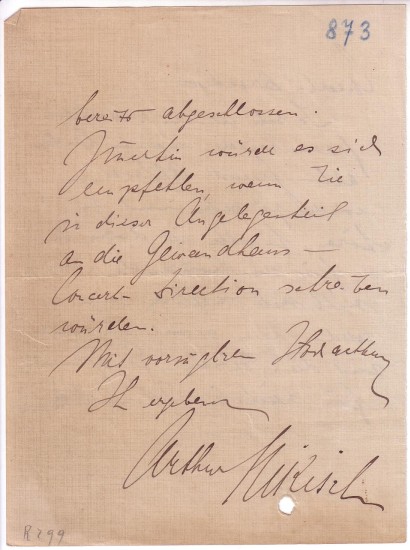 873
bereits abgeschlossen.
Immerhin würde es sich
empfehlen, wenn Sie
in dieser Angelegenheit
an die Gewandhaus-
Concert-Direction schreiben
würden.
Mit vorzügl. Hochachtung
Ihr ergebener
Arthur Nikisch
R 299